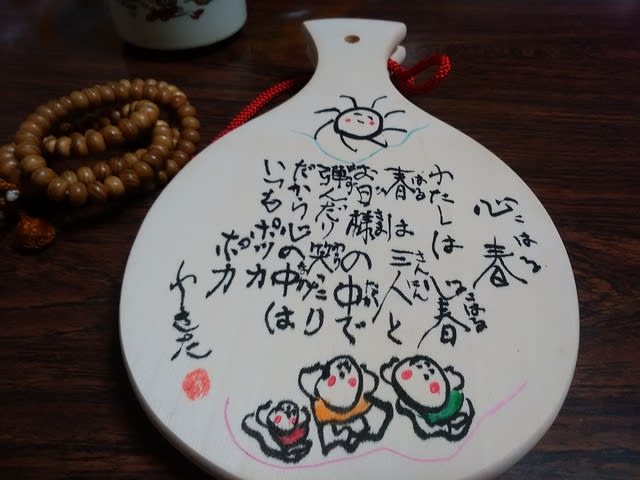 心春
わたしは心春
春は三人と
お日様の中で
弾んだり笑ったり
だから心の中は
いつもポッカ
ポカ